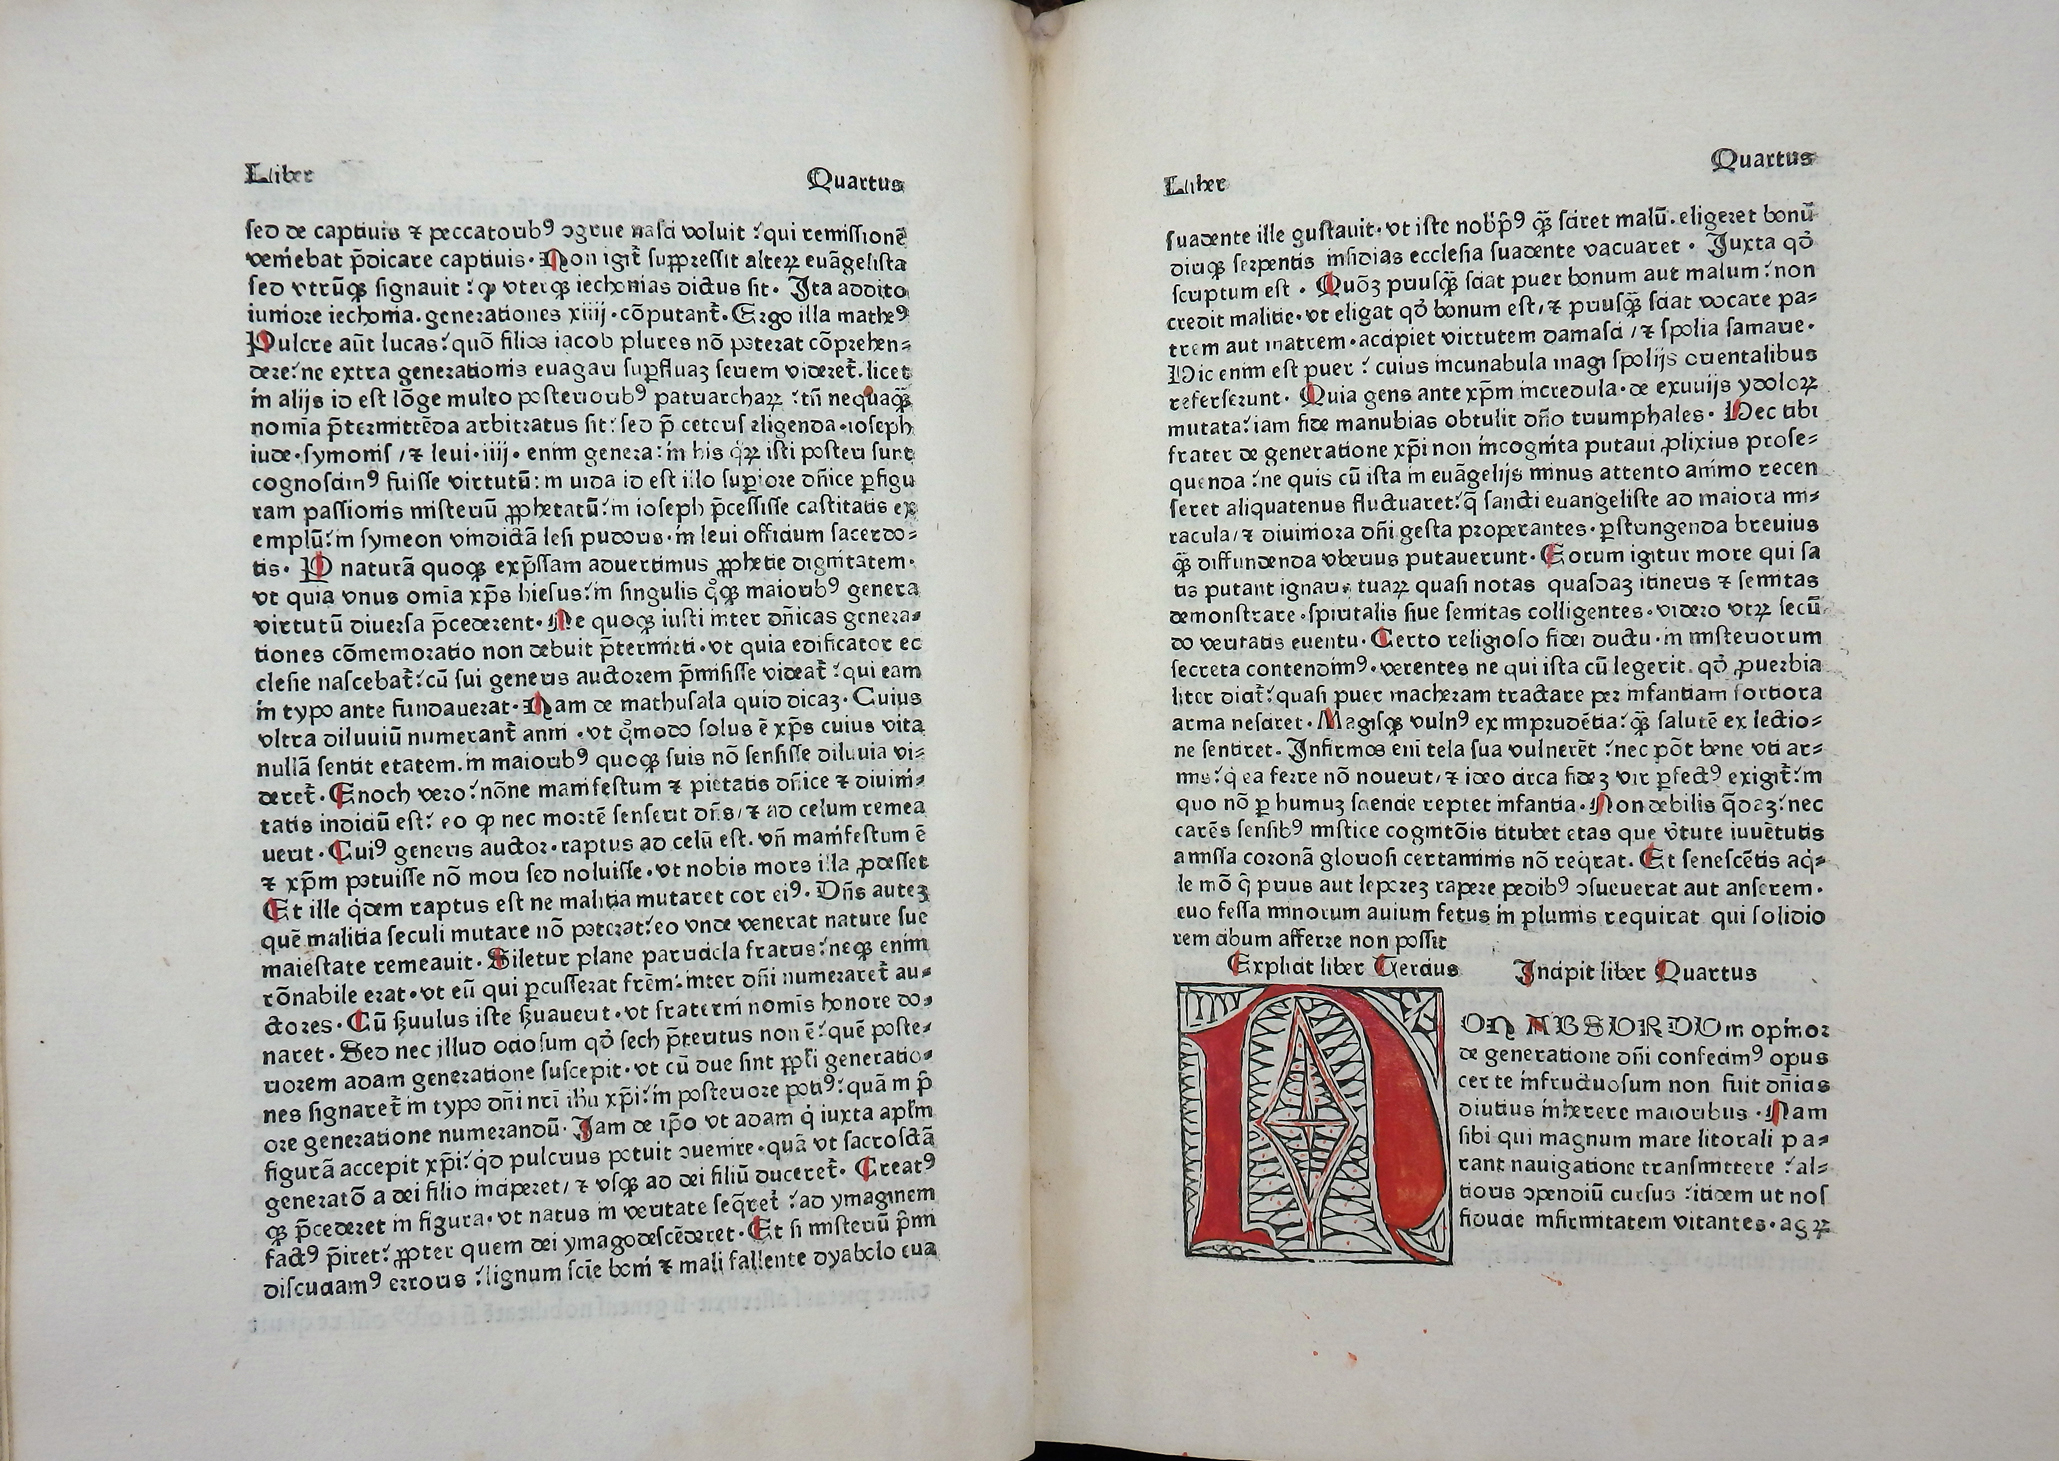 Liber Quartus
sed de captiuis ⁊ peccatorib⁹ ↄgrue nasci voluit : qui remissionē
veniebat p̄dicare captiuis. Non igit̄ suppressit alteꝝ euāgelista
sed vtrūqꝫ signauit : ꝙ vterqꝫ iechonias dictus sit. Ita addito
iuniore iechonia. generationes xiiij. cōputant̄. Ergo illa mathe⁹
Pulcre aūt lucas : quō filios iacob plures nō poterat cōprehen⸗
dere : ne extra generationis euagari suꝑfluaꝫ seriem videret̄. licet
in alijs id est lōge multo posteriorib⁹ patriarchaꝝ : tn̄ nequaqꝫ̄
nomīa p̄termittēda arbitratus sit : sed p̄ ceteris eligenda. ioseph
iude. symonis / ⁊ leui. iiij. enim genera : in his qͥꝝ isti posteri sunt
cognoscim⁹ fuisse virtutū : in iuda id est illo suꝑiore dn̄ice ꝑfigu
ram passionis misteriū ꝓphetatū : in ioseph p̄cessisse castitatis ex
emplū : in symeon vindictā lesi pudoris. in leui officium sacerdo⸗
tis. P naturā quoqꝫ exp̄ssam aduertimus ꝓphetie dignitatem.
vt quia vnus omīa xp̄s hiesus : in singulis qͦqꝫ maiorib⁹ genera
virtutū diuersa p̄cederent. Ne quoqꝫ iusti inter dn̄icas genera⸗
tiones cōmemoratio non debuit p̄termitti. vt quia edificator ec
clesie nascebat̄ : cū sui generis auctorem p̄misisse videat̄ : qui eam
in typo ante fundauerat. Nam de mathusala quid dicaꝫ. Cuius
vltra diluuiū numerant̄ anni. vt qͦmodo solus ē xp̄s cuius vita
nullā sentit etatem. in maiorib⁹ quoqꝫ suis nō sensisse diluuia vi⸗
deret̄. Enoch vero : nōne manifestum ⁊ pietatis dn̄ice ⁊ diuini⸗
tatis indiciū est : eo ꝙ nec mortē senserit dn̄s / ⁊ ad celum remea
uerit. Cui⁹ generis auctor. raptus ad celū est. vn̄ manifestum ē
⁊ xp̄m potuisse nō mori sed noluisse. vt nobis mors illa ꝓdesset
Et ille qͥdem raptus est ne malitia mutaret cor ei⁹. Dn̄s auteꝫ
quē malitia seculi mutare nō poterat : eo vnde venerat nature sue
maiestate remeauit. Siletur plane parricida fratris : neqꝫ enim
rōnabile erat. vt eū qui ꝑcusserat frēm : inter dn̄i numeraret̄ au⸗
ctores. Cū ẞuulus iste ẞuauerit. vt fraterni nominis honore do⸗
naret. Sed nec illud ociosum qd̄ sech p̄teritus non ē : quē poste⸗
riorem adam generatione suscepit. vt cū due sint ppl̄i generatio⸗
nes signaret̄ in typo dn̄i nr̄i ihū xp̄i : in posteriore poti⁹ : quā in p̄
ore generatione numerandū. Iam de ip̄o vt adam qͥ iuxta apl̄m
figurā accepit xp̄i : qͥd pulcrius potuit ↄuenire. quā vt sacrosctā
generatō a dei filio inciperet / ⁊ vsqꝫ ad dei filiū duceret̄. Creat⁹
qꝫ p̄cederet in figura. vt natus in veritate seqret̄ : ad ymaginem
fact⁹ p̄iret : ꝓpter quem dei ymago descēderet. Et si misteriū p̄mi
discuciam⁹ erroris : lignum scīe boni ⁊ mali fallente dyabolo eua
Liber Quartus
suadente ille gustauit. vt iste nob̄ p̄⁹ qꝫ̄ sciret malū. eligeret bonū
diuqꝫ serpentis insidias ecclesia suadente vacuaret. Juxta qd̄
scriptum est. Quōꝫ priusqꝫ̄ sciat puer bonum aut malum : non
credit malitie. vt eligat qd̄ bonum est / ⁊ priusqꝫ̄ sciat vocare pa⸗
trem aut matrem. accipiet virtutem damasci / ⁊ spolia samarie.
Hic enim est puer : cuius incunabula magi spolijs orientalibus
referserunt. Quia gens ante xp̄m incredula. de exuuijs ydoloꝝ
mutata : iam fide manubias obtulit dn̄o triumphales. Hec tibi
frater de generatione xp̄i non incognita putaui ꝓlixius prose⸗
quenda : ne quis cū ista in euāgelijs minus attento animo recen
seret aliquatenus fluctuaret : q̄ sancti euangeliste ad maiora mi⸗
racula / ⁊ diuiniora dn̄i gesta properantes. ꝑstringenda breuius
qꝫ̄ diffundenda vberius putauerunt. Eorum igitur more qui sa
tis putant ignaris tuaꝝ quasi notas quasdaꝫ itineris ⁊ semitas
demonstrare. spiritalis siue semitas colligentes. videro vtꝝ secū
do veritatis euentu. Certo religioso fidei ductu. in misteriorum
secreta contendim⁹. verentes ne qui ista cū legerit. qd̄ ꝓuerbia
liter dicit̄ : quasi puer macheram tractare per infantiam fortiora
arma nesciret. Magisqꝫ vuln⁹ ex imprudētia : qꝫ̄ salutē ex lectio⸗
ne sentiret. Infirmos eni tela sua vulnerēt : nec pōt bene vti ar⸗
mis : qͥ ea ferre nō nouerit / ⁊ ideo circa fideꝫ vir ꝑfect⁹ exigit̄ : in
quo nō ꝑ humuꝫ sciende reptet infantia. Non debilis qͥdaꝫ : nec
carēs sensib⁹ mistice cognitōis titubet etas que v̓tute iuuētutis
amissa coronā gloriosi certaminis nō reqͥrat. Et senescētis aqͥ⸗
le mō qͥ prius aut leporeꝫ rapere pedib⁹ ↄsueuerat aut anserem.
euo fessa minorum auium fetus in plumis requirat qui solidio
rem cibum afferre non possit
Explicit liber Tercius Incipit liber Quartus
NON ABSURDUm opinor
de generatione dn̄i confecim⁹ opus
certe infructuosum non fuit dn̄icis
diutius inherere maioribus. Nam
sibi qui magnum mare litorali pa⸗
rant nauigatione transmittere : al⸗
tioris ↄpendiū cursus : itidem ut nos
fiducie infirmitatem vitantes. agꝝ